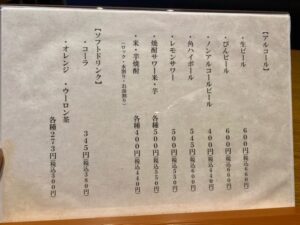 【アルコール】
・生ビール 600円(税込660円)
・びんビール 600円(税込660円)
・ノンアルコールビール 400円(税込440円)
・角ハイボール 545円(税込600円)
・レモンサワー 500円(税込550円)
・焼酎サワー米・芋 各種500円(税込550円)
・米・芋焼酎 各種400円(税込440円)
(ロック・水割り・お湯割り)
【ソフトドリンク】
・コーラ 345円(税込380円)
・オレンジ・ウーロン茶 各種273円(税込300円)